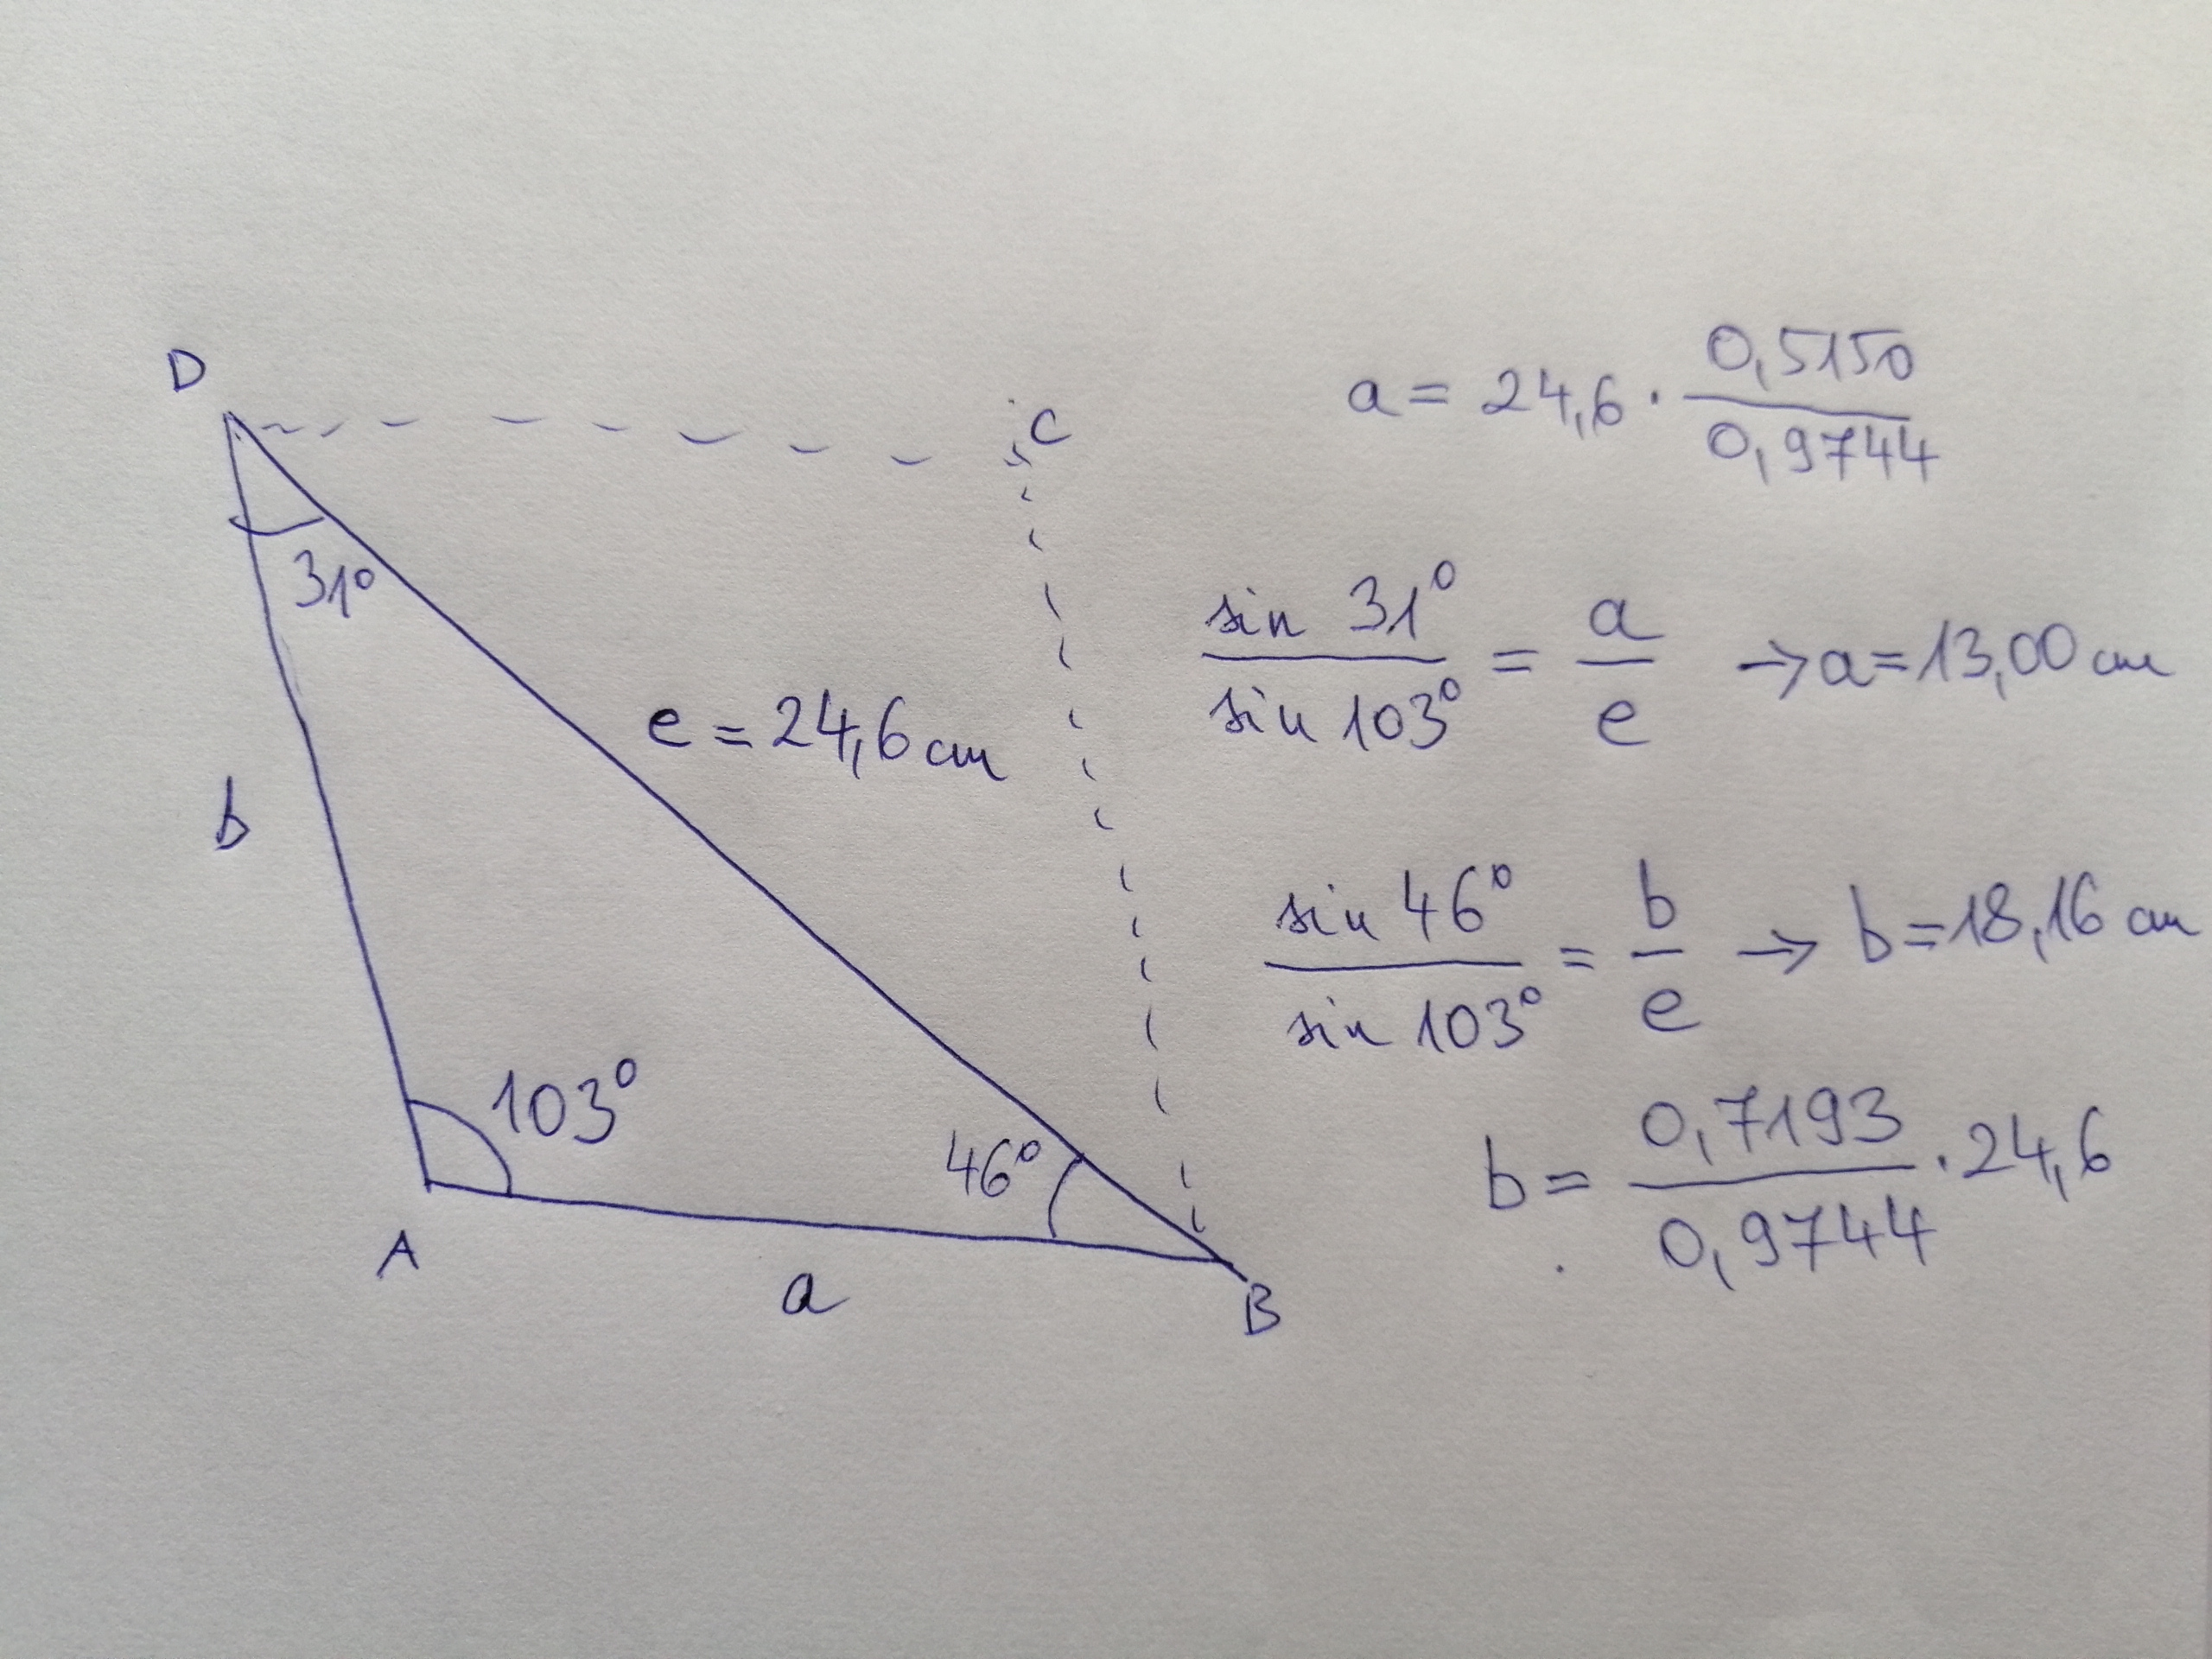 D
C
31°
e = 24,6 cm
b
103°
46°
A
a
B
a = 24,6 · 0,5150 / 0,9744
sin 31° / sin 103° = a / e → a = 13,00 cm
sin 46° / sin 103° = b / e → b = 18,16 cm
b = 0,7193 / 0,9744 · 24,6